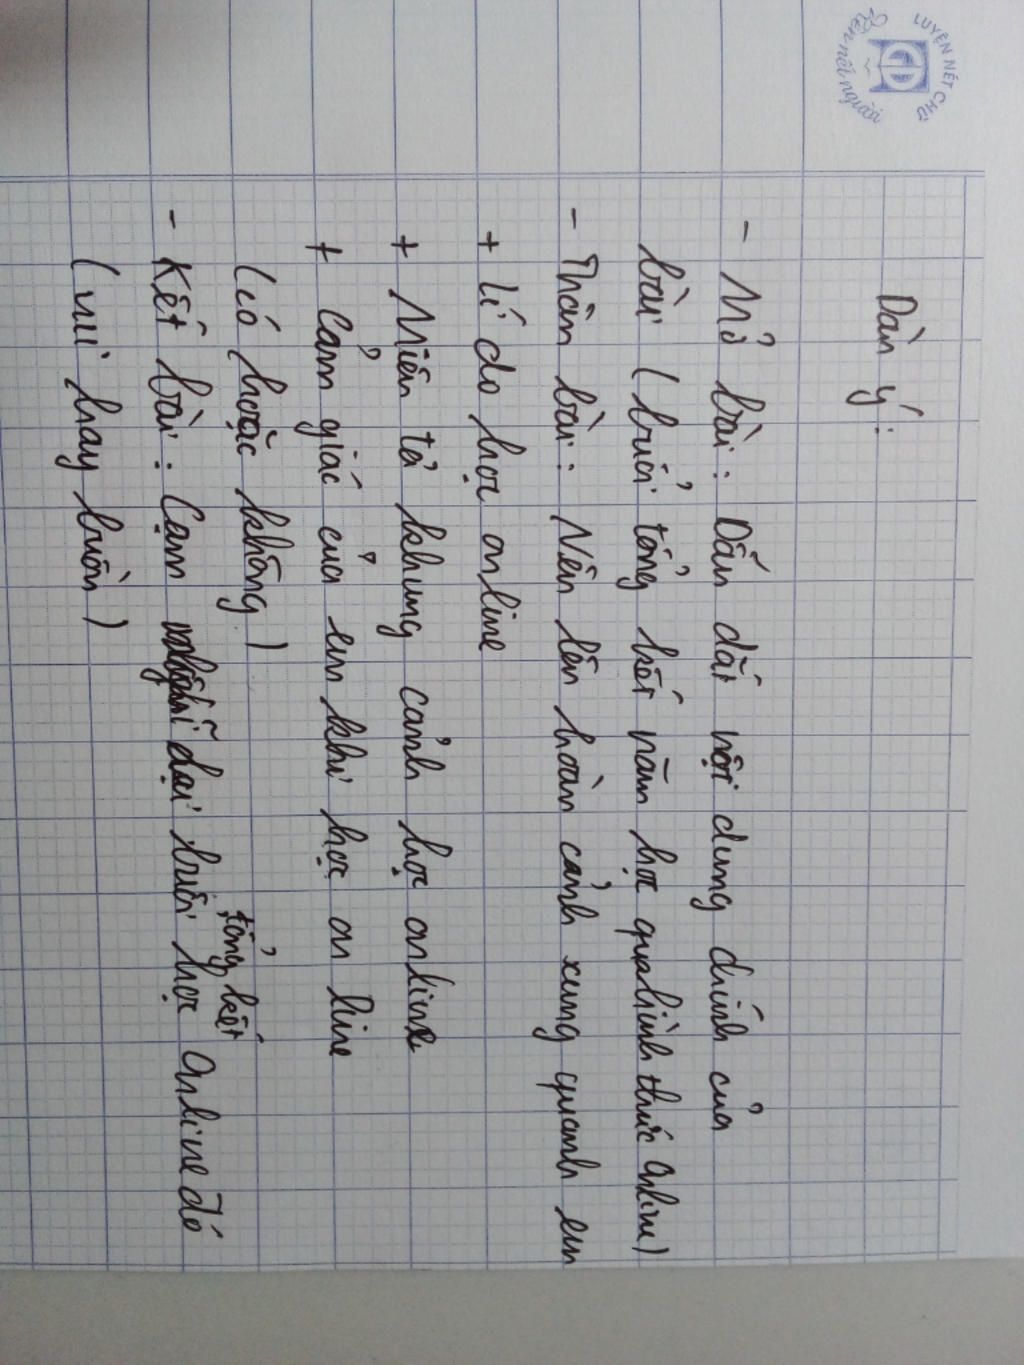 LUYỆN NÉT CHỮ
Rèn nết người
Dàn ý:
- Mở bài: Dẫn dắt nội dung chính của
bài (buổi tổng kết năm học qua hình thức Online)
- Thân bài: Nên lên hoàn cảnh xung quanh em
+ Lí do học online
+ Miên tả khung cảnh học online
+ Cảm giác của em khi học on line
(có hoặc không)
- Kết bài: Cảm nghĩ lại buổi học tổng kết Online đó
(vui hay buồn)